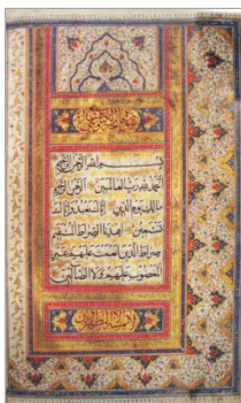 بسم الله الرحمن الرحيم
الحمد لله رب العالمين الرحمن الرحيم
مالك يوم الدين إياك نعبد وإياك
نستعين اهدنا الصراط المستقيم
صراط الذين أنعمت عليهم غير
المغضوب عليهم ولا الضالين
لا يمسه إلا المطهرون